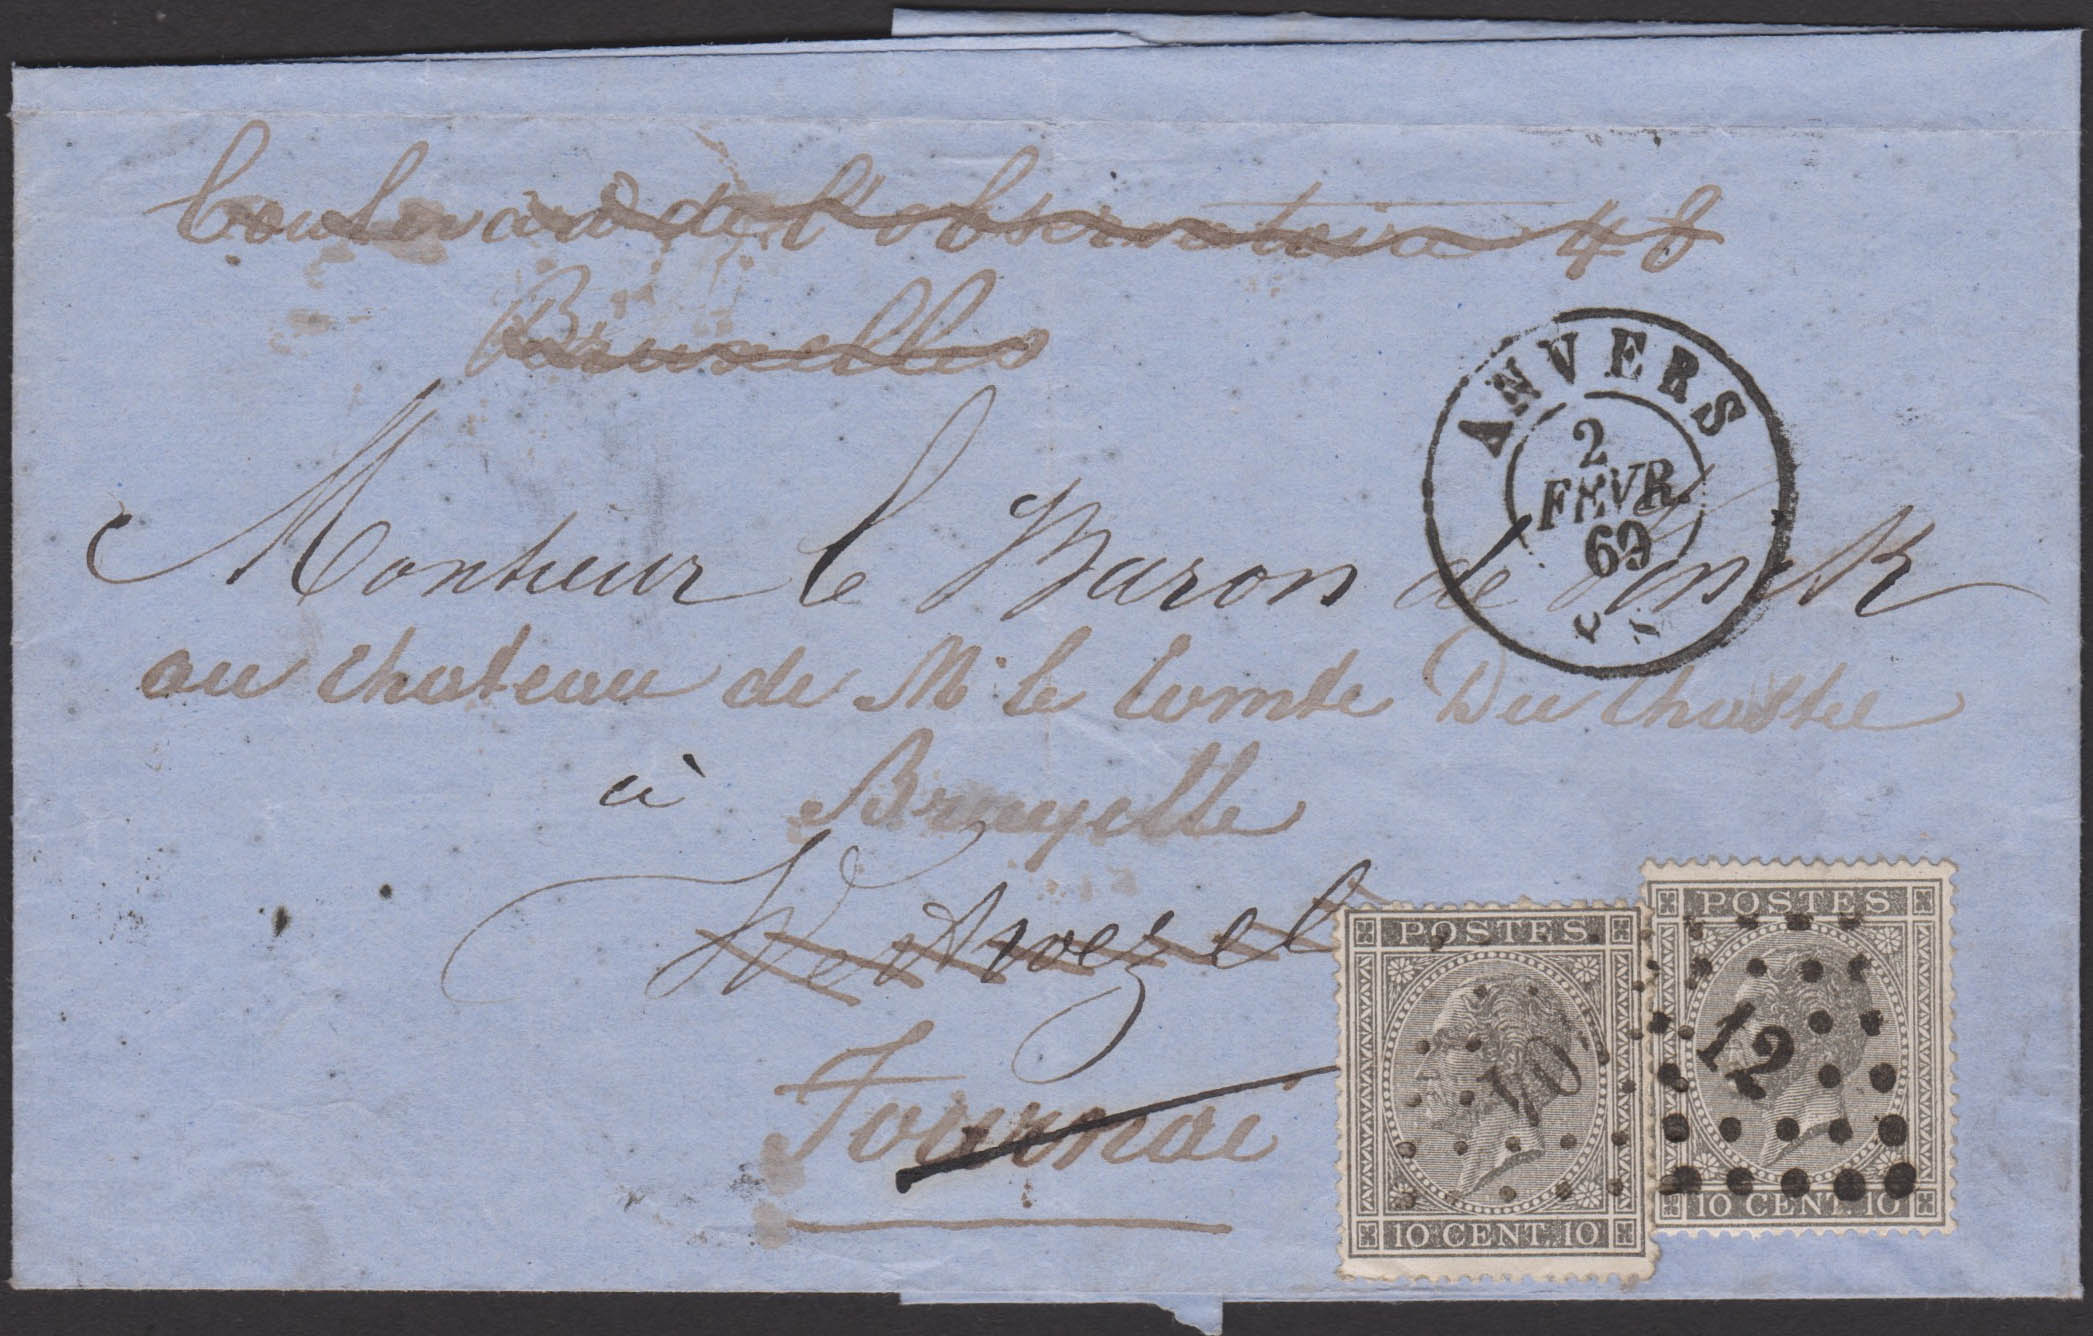 boulevard de l'observatoire 48
Bruxelles
ANVERS
2
FEVR.
69
Monsieur le Baron de Vinck
au chateau de Mr le Comte Du Chastel
à Bruyelle
Westwezel
Tournai
POSTES
40
10 CENT. 10
POSTES
12
10 CENT. 10